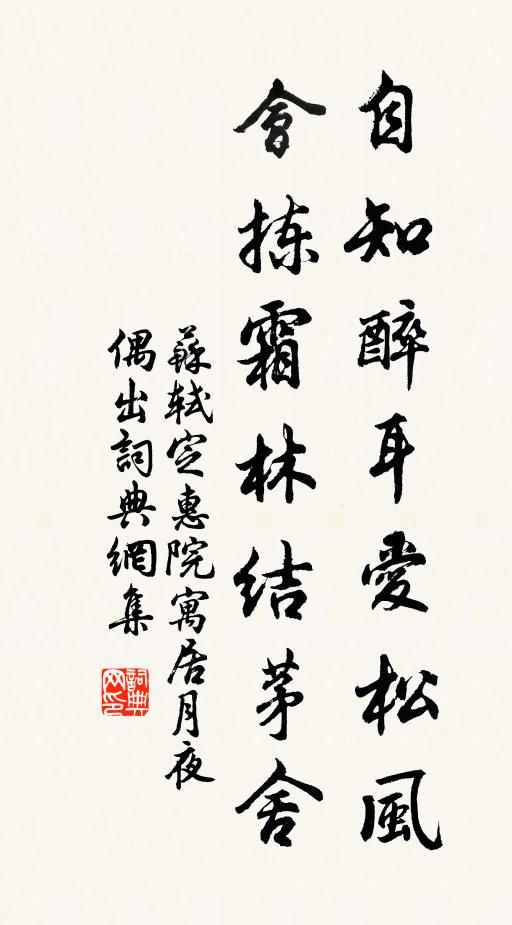 自知醉耳愛松風
會拣霜林結茅舍
蘇軾定惠院寓居月夜
偶出詞典網集
詞典网印